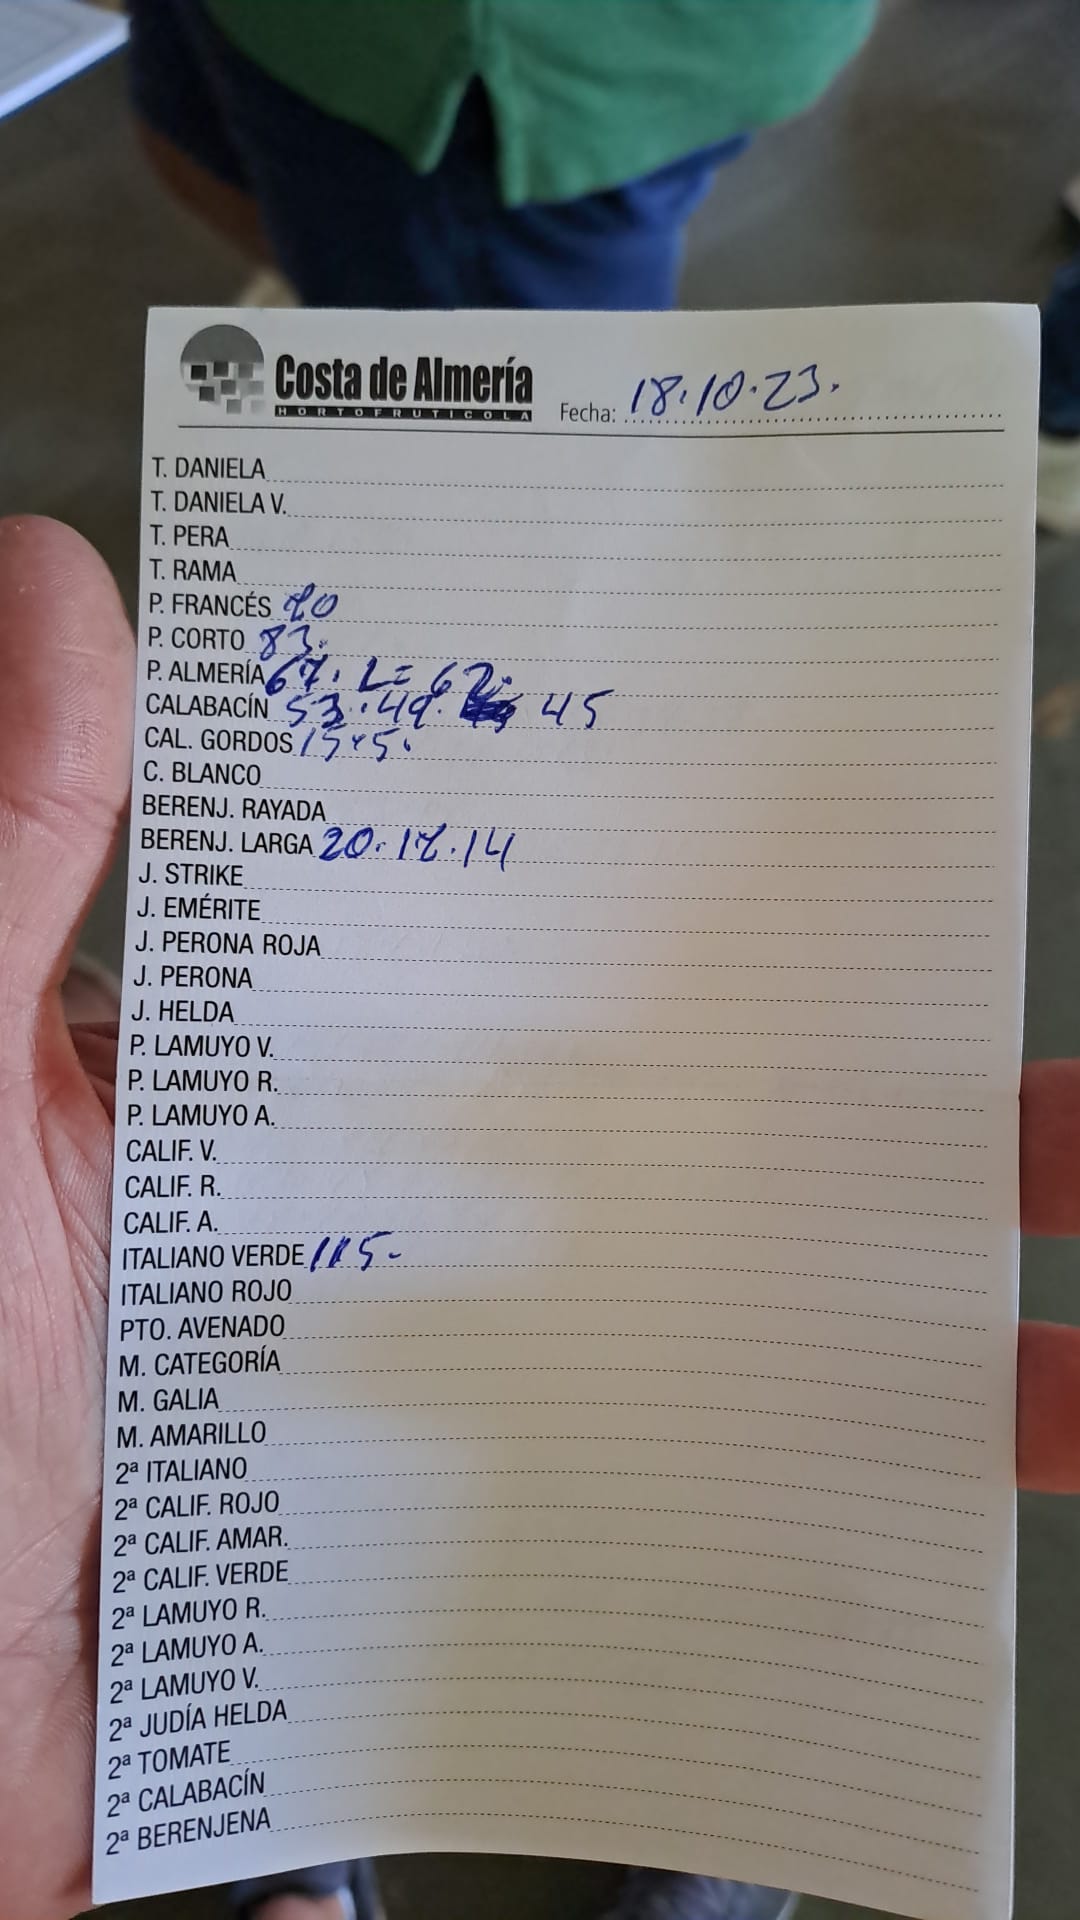 Costa de Almería
HORTOFRUTICOLA
Fecha: 18.10.23.
T. DANIELA
T. DANIELA V.
T. PERA
T. RAMA
P. FRANCÉS
P. CORTO 83.
P. ALMERÍA 67. L= 62.
CALABACÍN 53. 49. 45
CAL. GORDOS 15 y 5.
C. BLANCO
BERENJ. RAYADA
BERENJ. LARGA 20. 14
J. STRIKE
J. EMÉRITE
J. PERONA ROJA
J. PERONA
J. HELDA
P. LAMUYO V.
P. LAMUYO R.
P. LAMUYO A.
CALIF. V.
CALIF. R.
CALIF. A.
ITALIANO VERDE 115.
ITALIANO ROJO
PTO. AVENADO
M. CATEGORÍA
M. GALIA
M. AMARILLO
2ª ITALIANO
2ª CALIF. ROJO
2ª CALIF. AMAR.
2ª CALIF. VERDE
2ª LAMUYO R.
2ª LAMUYO A.
2ª LAMUYO V.
2ª JUDÍA HELDA
2ª TOMATE
2ª CALABACÍN
2ª BERENJENA